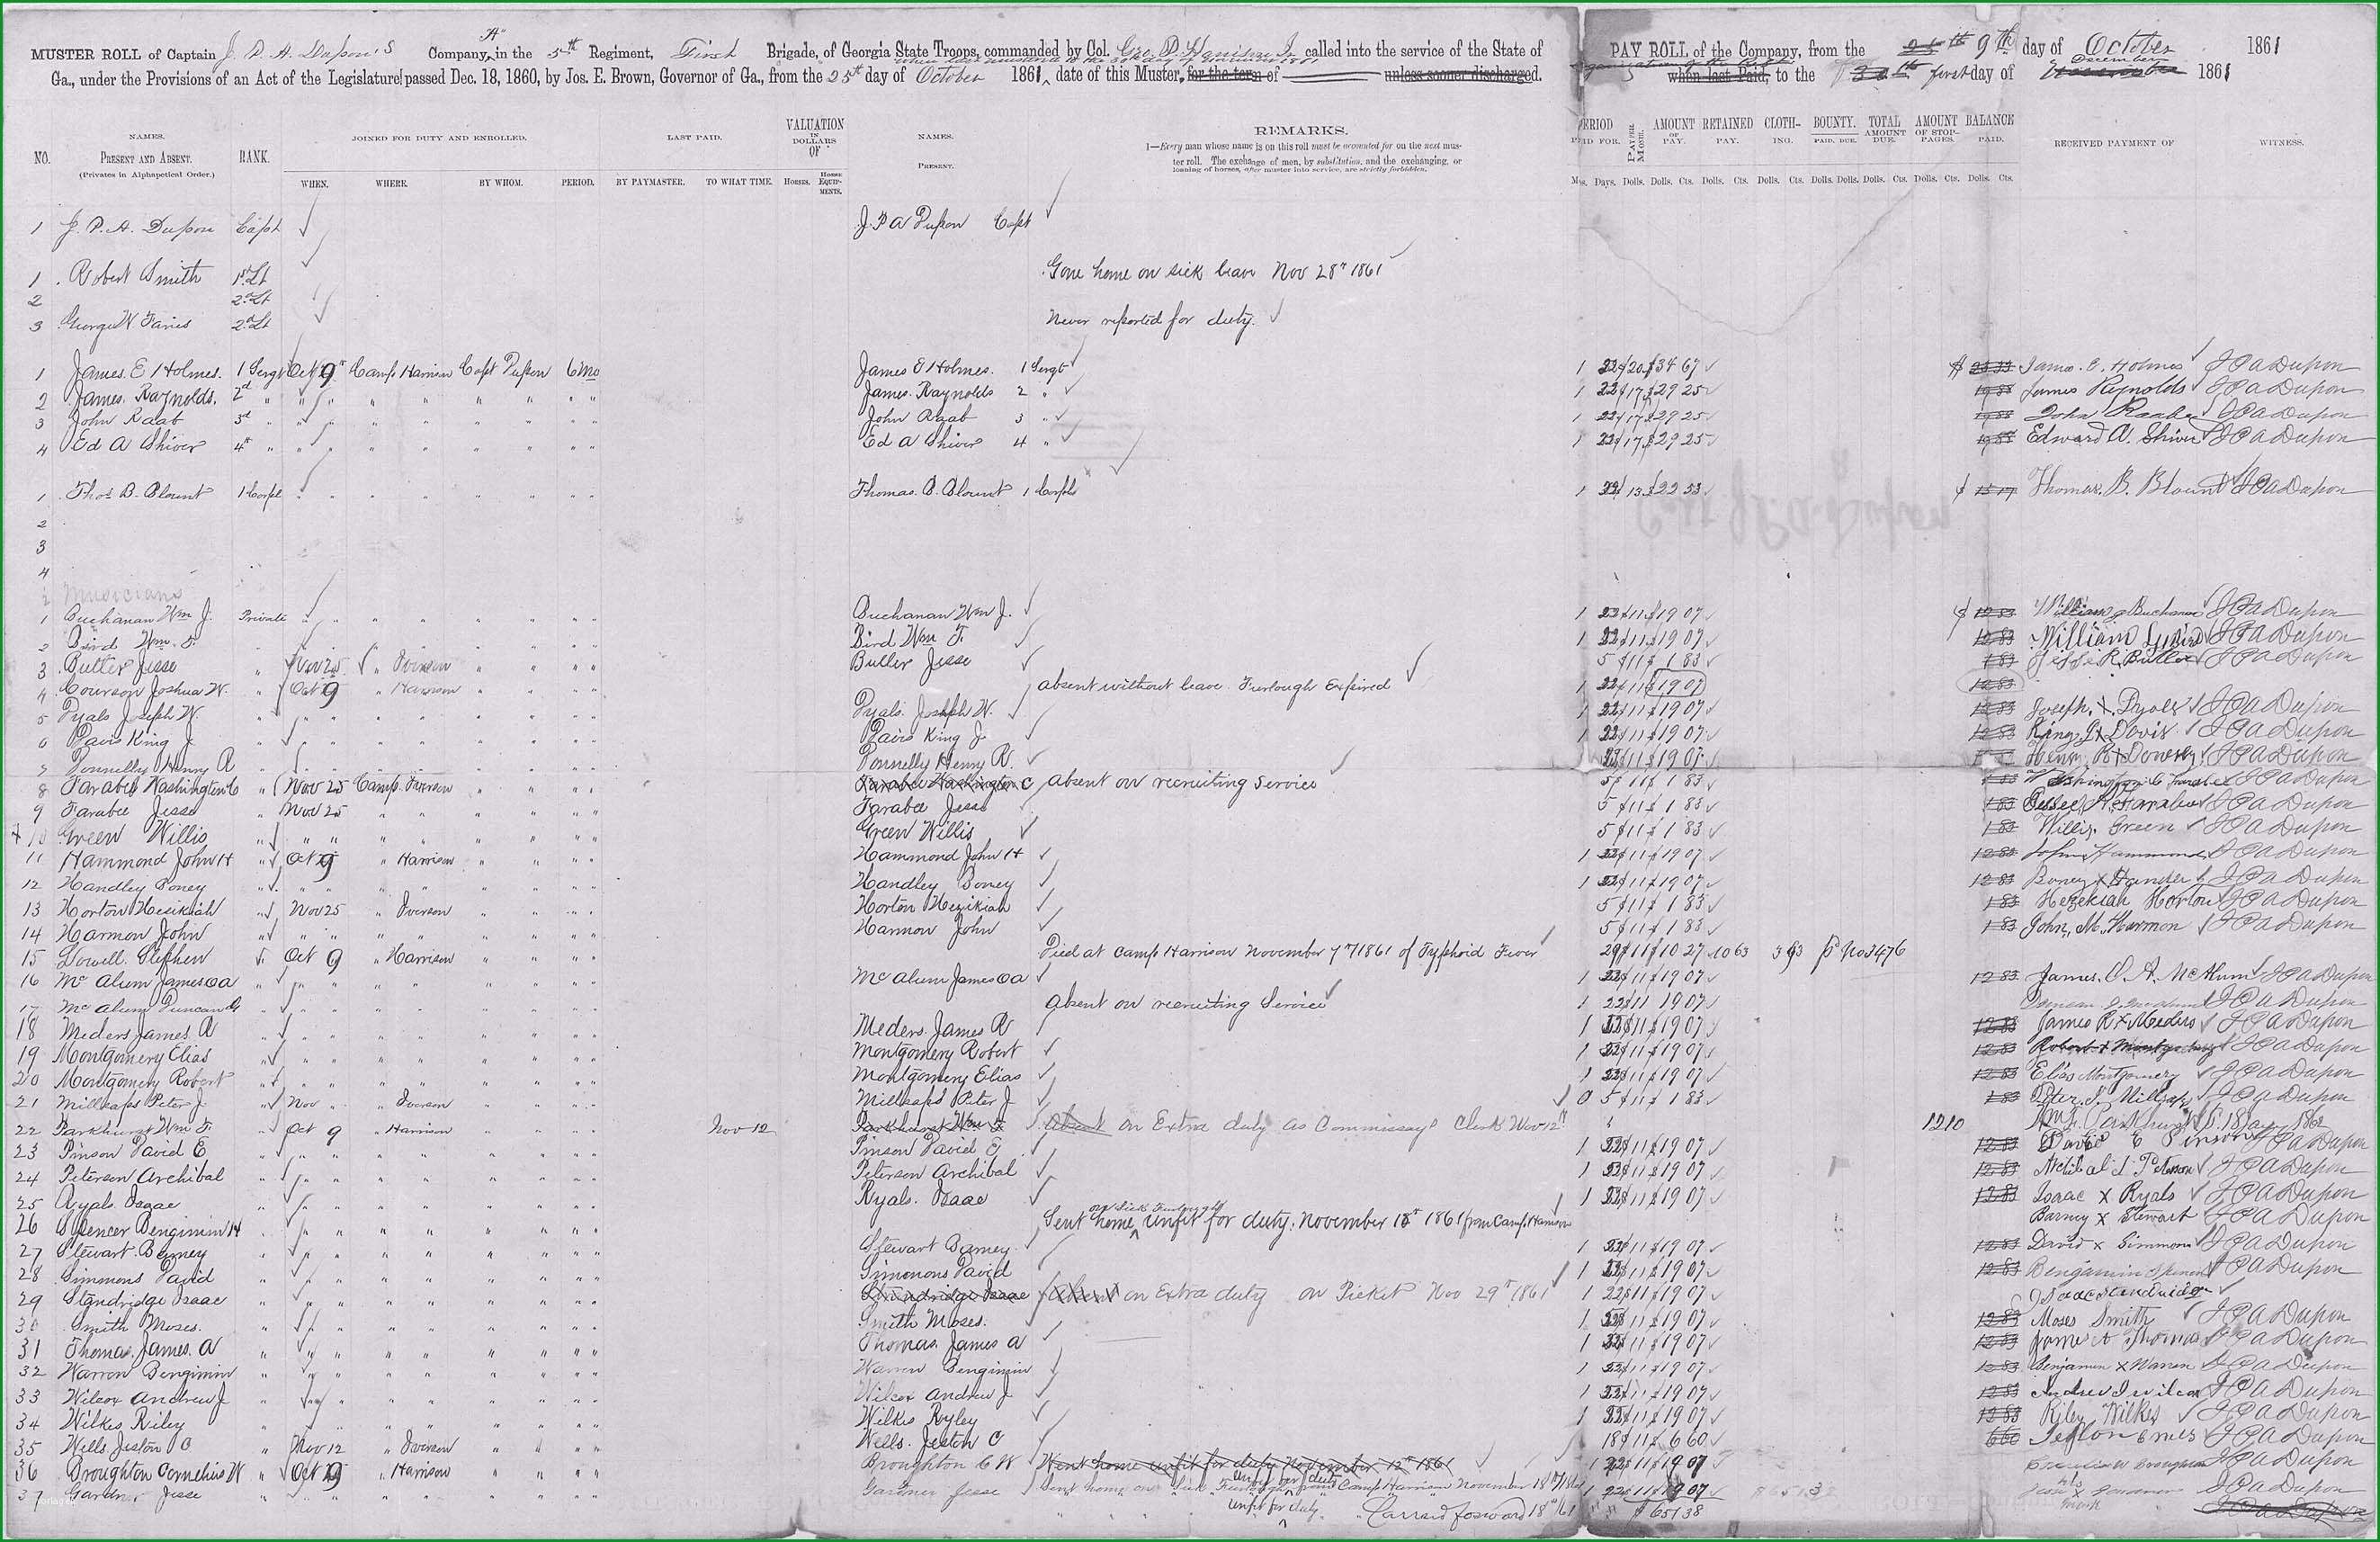 MUSTER ROLL of Captain J. P. A. Dupon's Company, "A" in the 5th Regiment, First Brigade, of Georgia State Troops, commanded by Col. Geo. P. Harrison Jr called into the service of the State of
Ga., under the Provisions of an Act of the Legislature passed Dec. 18, 1860, by Jos. E. Brown, Governor of Ga., from the 25th day of October 1861, date of this Muster, for the term of unless sooner discharged.
PAY ROLL of the Company, from the 25th 9th day of October 1861
when last Paid, to the 30th first day of December 1861
NO. NAMES. PRESENT AND ABSENT. (Privates in Alphapetical Order.) RANK. JOINED FOR DUTY AND ENROLLED. WHEN. WHERE. BY WHOM. PERIOD. LAST PAID. BY PAYMASTER. TO WHAT TIME. VALUATION IN DOLLARS OF HORSES. HORSE EQUIPMENTS. NAMES. PRESENT.
REMARKS.
1—Every man whose name is on this roll must be accounted for on the next muster roll. The exchange of men, by substitution, and the exchanging, or loaning of horses, after muster into service, are strictly forbidden.
PERIOD PAID FOR. PAY PER MONTH. AMOUNT OF PAY. RETAINED PAY. CLOTHING. BOUNTY. PAID. DUE. TOTAL AMOUNT DUE. AMOUNT OF STOPPAGES. BALANCE PAID. RECEIVED PAYMENT OF WITNESS.
Mos. Days. Dolls. Dolls. Cts. Dolls. Cts. Dolls. Cts. Dolls. Dolls. Dolls. Cts. Dolls. Cts. Dolls. Cts.
1 J. P. A. Dupon Capt J. P A Dupon Capt
1 Robert Smith 1st Lt Gone home on sick leave Nov 28th 1861
2 2d Lt
3 George W. Faries 2d Lt Never reported for duty.
1 James. E Holmes. 1 Sergt Oct 9th Camp Harrison Capt Dupon 6 mo James E Holmes. 1 Sergt 1 22 $20 $34 67 $ 23 33 James. E. Holmes J P A Dupon
2 James. Raynolds. 2d " James. Raynolds 2 " 1 22 $17 $29 25 James Reynolds J P A Dupon
3 John Raab 3d " John Raab 3 " 1 22 $17 $29 25 John Raab J P A Dupon
4 Ed A Shiver 4th " Ed A Shiver 4 " 1 22 $17 $29 25 Edward A. Shiver J P A Dupon
1 Thos B. Blount 1 Corpl Thomas. B. Blount 1 Corpl 1 22 13 $22 53 Thomas. B. Blount J P A Dupon
2
3
4
Musicians
1 Buchanan Wm J. Private Buchanan Wm J. 1 22 $11 $19 07 $ 12 83 William J Buchanan J P A Dupon
2 Bird Wm. F. Bird Wm F. 1 22 $11 $19 07 12 83 William J P A Dupon
3 Butler Jesse Nov 25 " Iverson Butler Jesse 5 $11 $ 1 83 1 83 Jesse R. Butler J P A Dupon
4 Courson Joshua W. Oct 9 " Harrison absent without leave. Furlough Expired 1 22 $11 $19 07 12 83
5 Dyals Joseph W. Dyals. Joseph W. 1 22 $11 $19 07 12 83 Joseph. X. Dyals J P A Dupon
6 Davis King J. Davis King J. 1 22 $11 $19 07 12 83 King. J X Davis J P A Dupon
7 Donnelly Henry R Donnelly Henry R. $11 $19 07 Henry R X J P A Dupon
8 Farabee Washington C Nov 25 Camp. Iverson Farabee Washington C absent on recruiting Service 5 $11 $ 1 83 1 83 Washington C Farabee J P A Dupon
9 Farabee Jesse Nov 25 Farabee Jesse 5 $11 $ 1 83 1 83 Jesse Farabee J P A Dupon
10 Green Willis Green Willis 5 $11 $ 1 83 1 83 Willis. Green J P A Dupon
11 Hammond John H Oct 9 " Harrison Hammond John H 1 22 $11 $19 07 12 83 John Hammond J P A Dupon
12 Handley Boney Handley Boney 1 22 $11 $19 07 12 83 Boney X Handley J P A Dupon
13 Horton Hesikiah Nov 25 " Iverson Horton Hezikiah 5 $11 $ 1 83 1 83 Hezekiah Horton J P A Dupon
14 Harmon John Harmon John 5 $11 $ 1 83 1 83 John, M. Harmon J P A Dupon
15 Dowell. Stephen Oct 9 " Harrison Died at Camp Harrison November 7th 1861 of Typhoid Fever 29 $11 $10 27 10 63 No 3476
16 Mc Alum James O A Mc Alum James O A 1 22 $11 $19 07 12 83 James. O. A. McAlum J P A Dupon
17 Mc Alum Duncan G absent on recruiting Service 1 22 $11 19 07 J P A Dupon
18 Meders James. R Meders. James R 1 22 $11 $19 07 12 83 James R X Meders J P A Dupon
19 Montgomery Elias Montgomery Robert 1 22 $11 $19 07 12 83 Robert X Montgomery J P A Dupon
20 Montgomery Robert Montgomery Elias 1 22 $11 $19 07 12 83 Elias Montgomery J P A Dupon
21 Millsaps Peter J. Nov " " Iverson Millsaps Peter J 0 5 $11 $ 1 83 1 83 Peter. J. Millsaps J P A Dupon
22 Parkhurst Wm F. Oct 9 " Harrison Nov 12 Parkhurst Wm F Absent on Extra duty as Commissary Clerk Nov 12th 12 10 Wm F. Parkhurst 18 Jany 1862
23 Pinson David E Pinson David E 1 22 $11 $19 07 12 83 David E Pinson J P A Dupon
24 Peterson Archibal Peterson Archibal 1 22 $11 $19 07 12 83 Archibald Peterson J P A Dupon
25 Ryals Isaac Ryals. Isaac 1 22 $11 $19 07 12 83 Isaac X Ryals J P A Dupon
26 Spencer Bengimin H Sent home, on Sick Furlough unfit for duty. November 18th 1861 from Camp. Harrison Barney X Stewart J P A Dupon
27 Stewart. Barney Stewart Barney. 1 22 $11 $19 07 12 83 David X Simmons J P A Dupon
28 Simmons David Simmons David 1 22 $11 $19 07 12 83 Benjamin Spencer J P A Dupon
29 Standridge Isaac Standridge Isaac Absent on Extra duty on Picket Nov 29th 1861 1 22 $11 $19 07 Isaac Standridge
30 Smith Moses. Smith Moses. 1 22 $11 $19 07 12 83 Moses Smith J P A Dupon
31 Thomas. James. A Thomas. James A 1 22 $11 $19 07 12 83 James A Thomas J P A Dupon
32 Warren Bengimin Warren Bengimin 1 22 $11 $19 07 12 83 Benjamin X Warren J P A Dupon
33 Wilcox Andrew J Wilcox Andrew J 1 22 $11 $19 07 12 83 Andrew J Wilcox J P A Dupon
34 Wilkes Riley Wilkes Ryley 1 22 $11 $19 07 12 83 Riley Wilkes J P A Dupon
35 Wells. Jeston C Nov 12 " Iverson Wells. Jeston C 18 $11 $ 6 60 6 60 J P A Dupon
36 Broughton Cornelius W Oct 9 " Harrison Broughton C W Went home unfit for duty November 12th 1861 1 22 $11 $19 07 J P A Dupon
37 Gardner Jesse Gardner Jesse Sent home on Sick Furlough unfit for duty from Camp Harrison November 18th 1861 1 22 $11 $19 07 Jesse X Gardner his mark J P A Dupon
unfit for duty. Carried forward 18th /61 $ 651 38 J P A Dupon